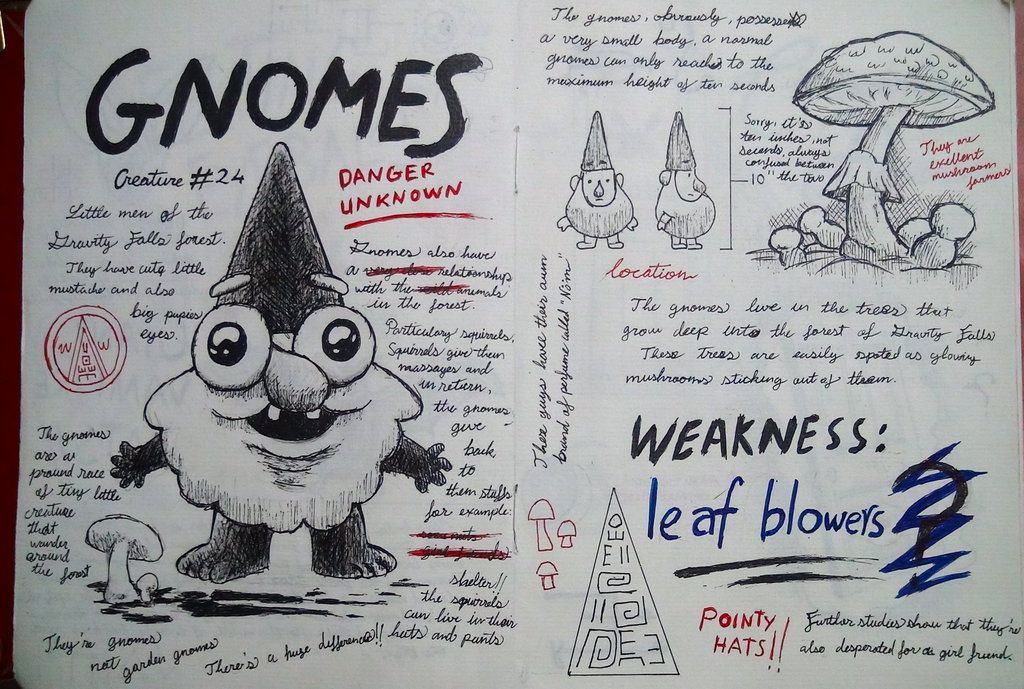 GNOMES
Creature #24
DANGER
UNKNOWN
Little men of the
Gravity Falls forest.
They have cute little
mustache and also
big pupies
eyes.
Gnomes also have
a very close relationship
with the wild animals
in the forest.
Particulary squirrels,
Squirrels give them
massages and
in return,
the gnomes
give
back
to
them stuffs
for example:
shelter!!
the squirrels
can live in their
hats and pants
The gnomes
are a
pround race
of tiny little
creature
that
wander
around
the forest
They're gnomes
not garden gnomes
There's a huge difference!!
The gnomes, obviously, possesses
a very small body, a normal
gnomes can only reache to the
maximum height of ten seconds
Sorry, it's
ten inches, not
seconds, always
confused between
10" the two
They are
excellent
mushroom
farmers
These guys have their own
brand of perfume called "Nôm"
location
The gnomes live in the trees that
grow deep into the forest of Gravity Falls
These trees are easily spoted as glowing
mushrooms sticking out of them.
WEAKNESS:
leaf blowers
?
POINTY
HATS!!
Further studies show that they're
also desperated for a girl friend.